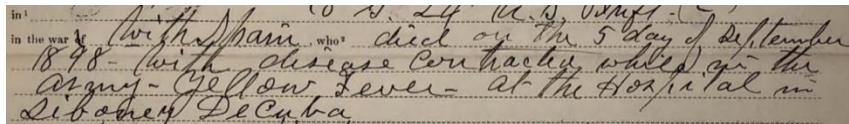 in¹ Co G. 24 U.S. Inft.
in the war of With Spain, who² died on the 5 day of September
1898 - With disease Contracted while in the
army - Yellow Fever - at the Hospital in
Siboney DeCuba